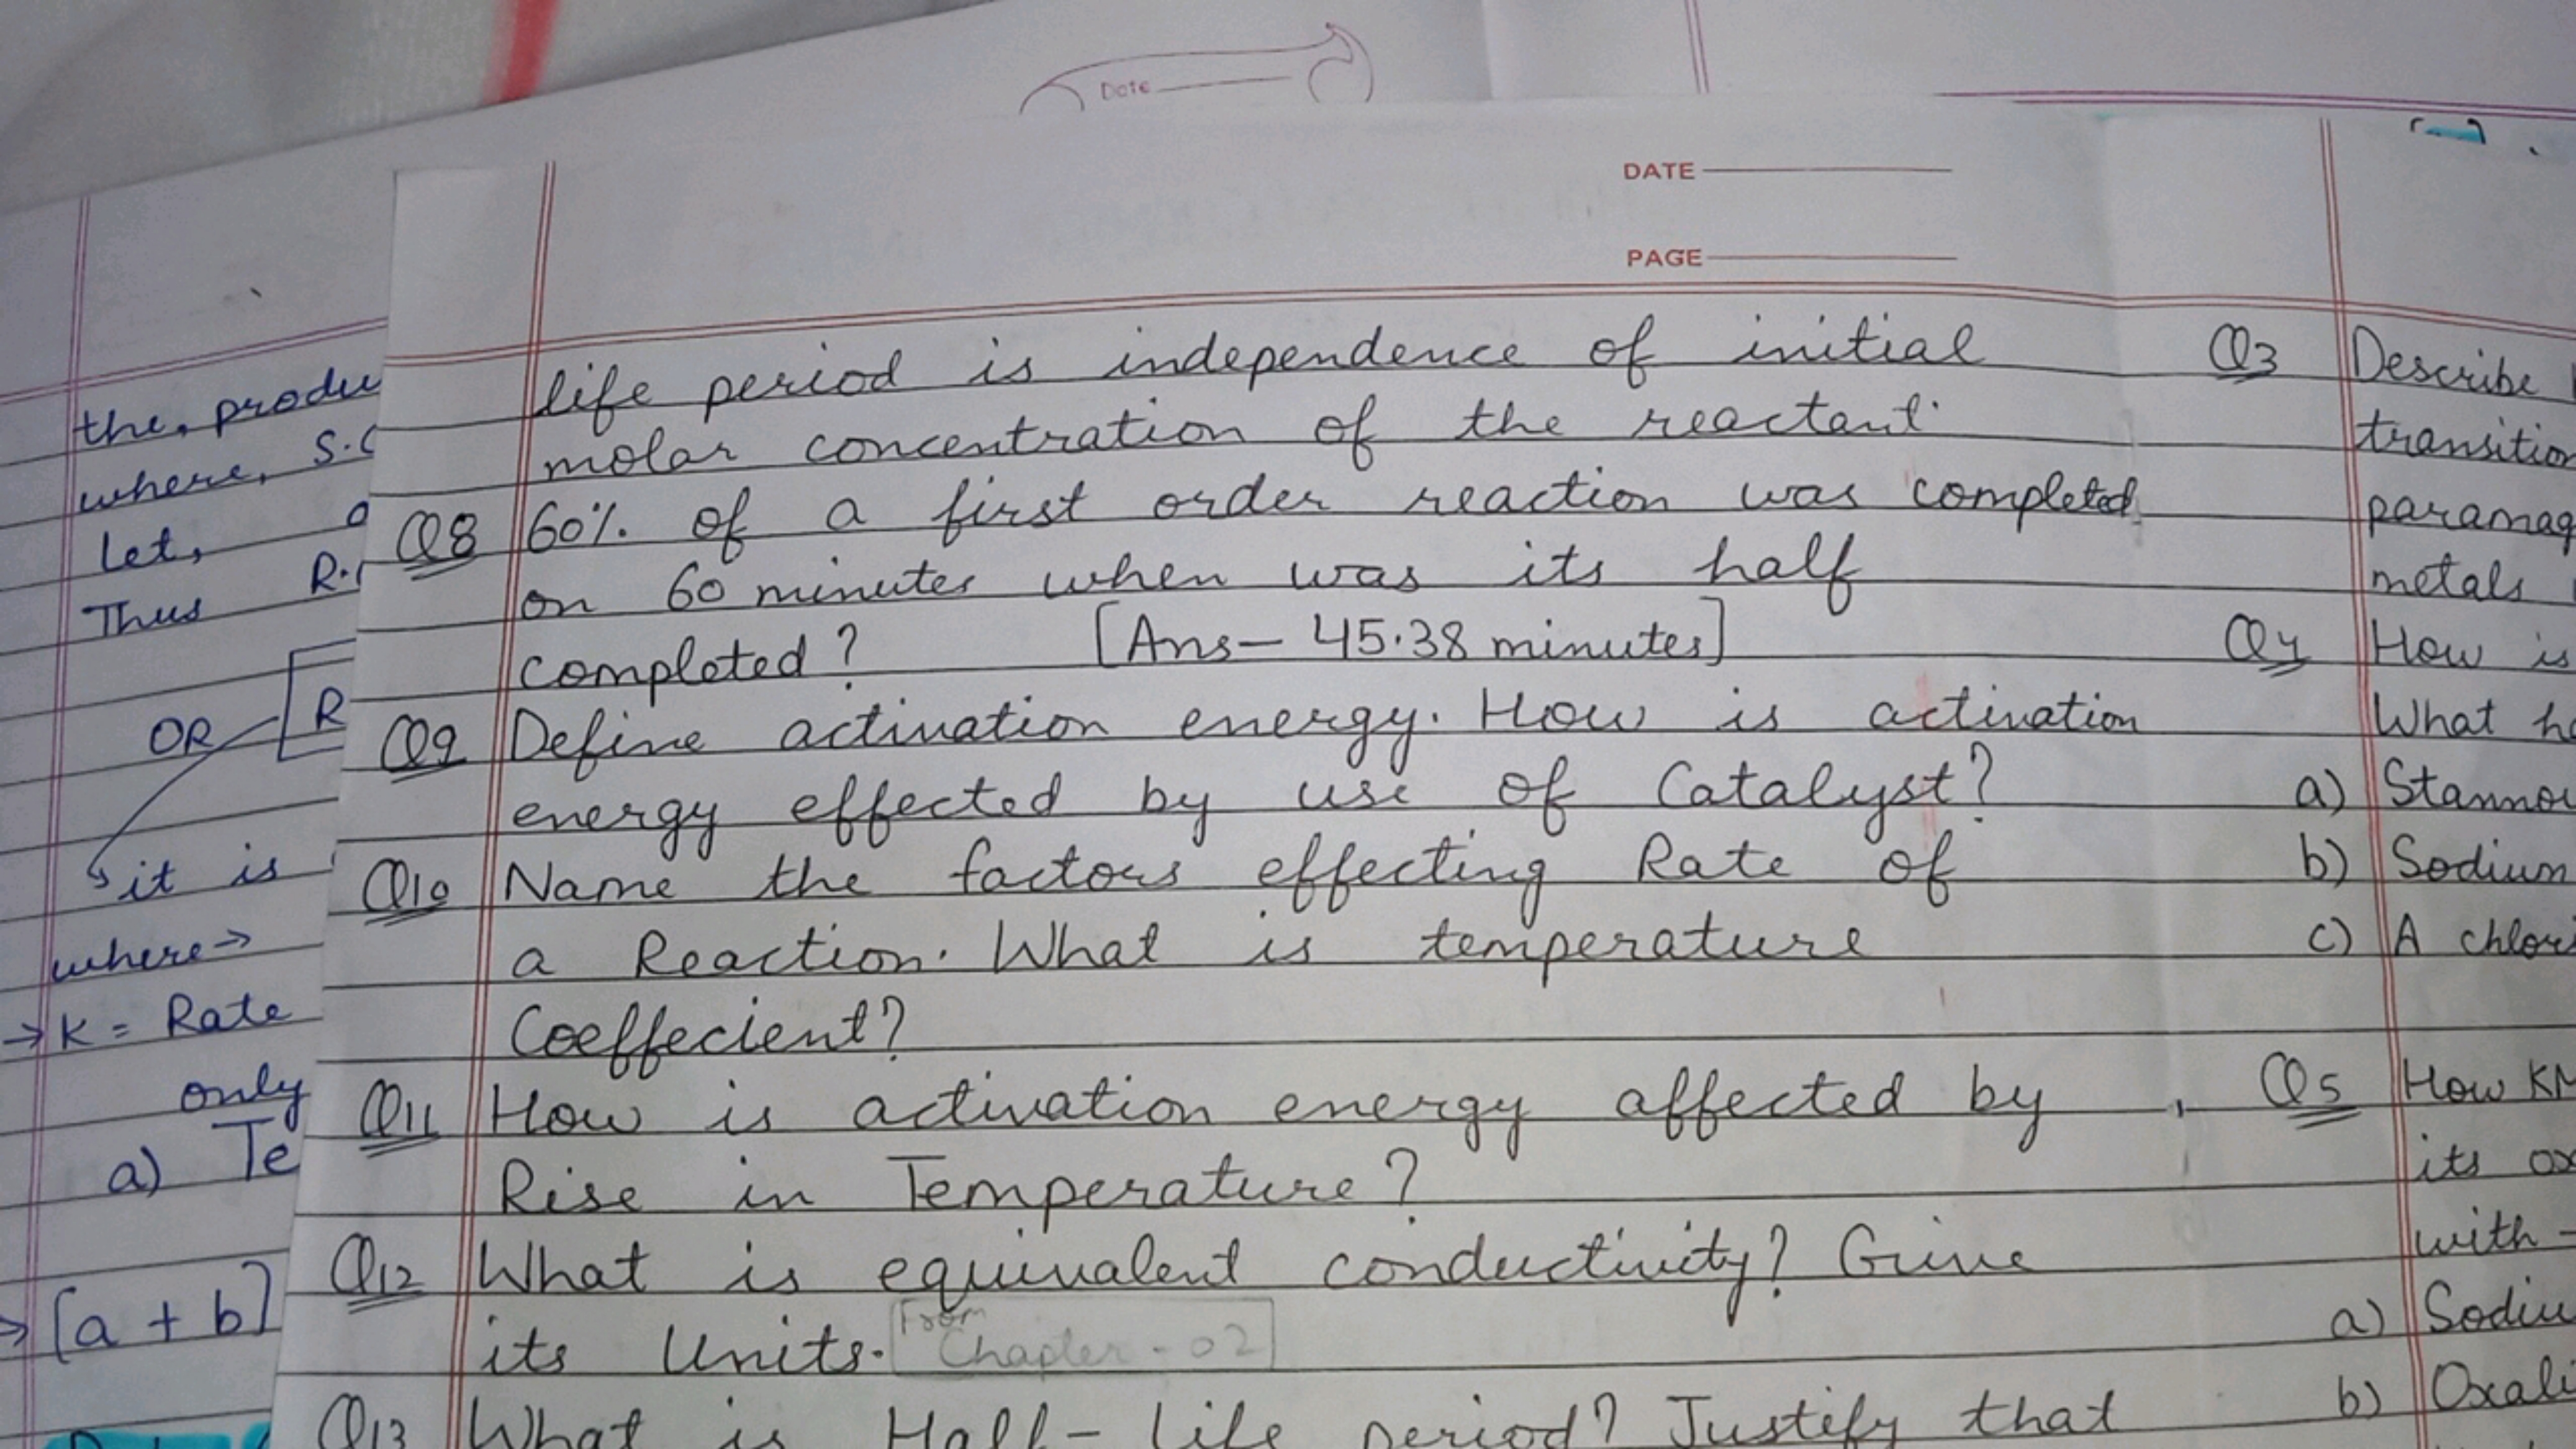 Date
DATE
PAGE
life period is independence of initial
molar concentration of the reactant.
Q8 60%. of a first order reaction was completed
on 60 minutes when was its half
completed? [Ans- 45.38 minutes]
Q9 Define activation energy. How is activation
energy effected by use of Catalyst?
Q10 Name the factors effecting Rate of
a Reaction. What is temperature
Coeffecient?
Q11 How is activation energy affected by
Rise in Temperature?
Q12 What is equivalent conductivity? Give
its Units. From Chapter-02
Q13 What is Half-Life period? Justify that
the, produ
where, S.C
Let,
Thus R.
OR R
it is
where→
→ K = Rate
only
a) Te
→ [a + b]
Q3 Describe
transition
paramag
metals
Q4 How is
What h
a) Stanno
b) Sodium
c) A chlor
Q5 How KM
its ox
with -
a) Sodiu
b) Oxali